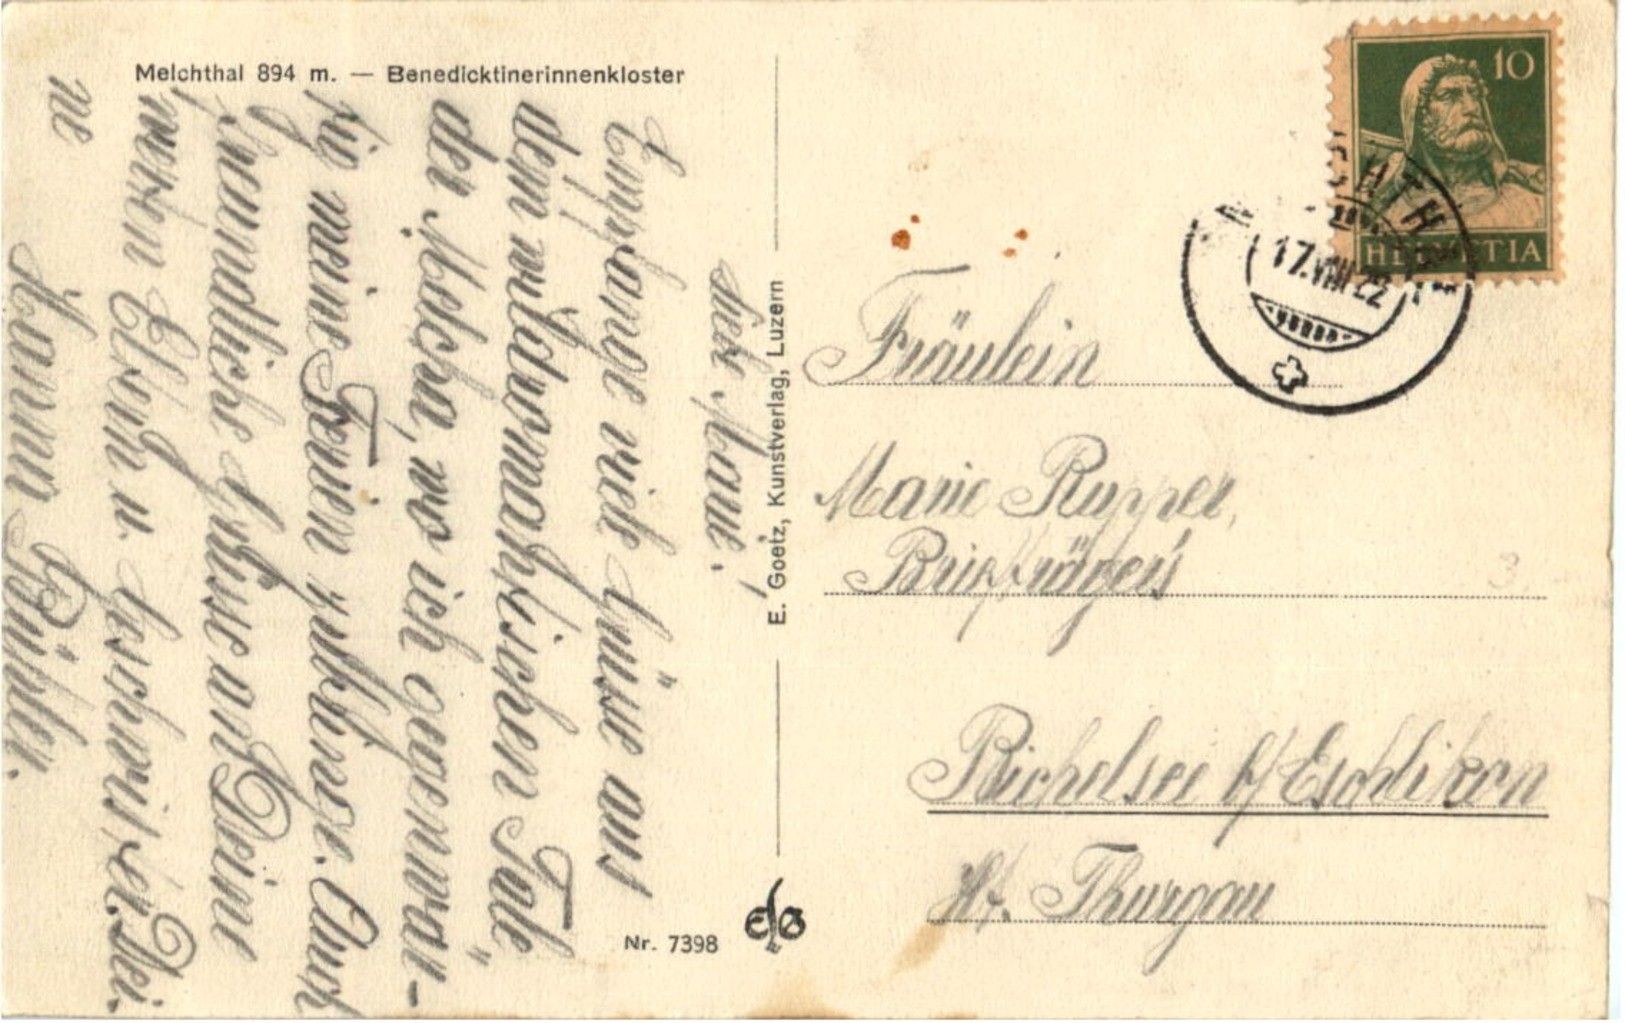 Melchthal 894 m. — Benedicktinerinnenkloster
Liebe Marie!
Empfange viele Grüsse aus
dem wildromantischen Tale
der Melcha, wo ich gegenwär-
tig meine Ferien zubringe. Auch
freundliche Grüsse an Deine
werten Eltern u. Geschwister. Dei-
ne
E. Goetz, Kunstverlag, Luzern
Nr. 7398
10
HELVETIA
17.VIII.22
Fräulein
Marie Rupper,
Briefträgers
Bichelsee b/Eschlikon
Kt. Thurgau
3.